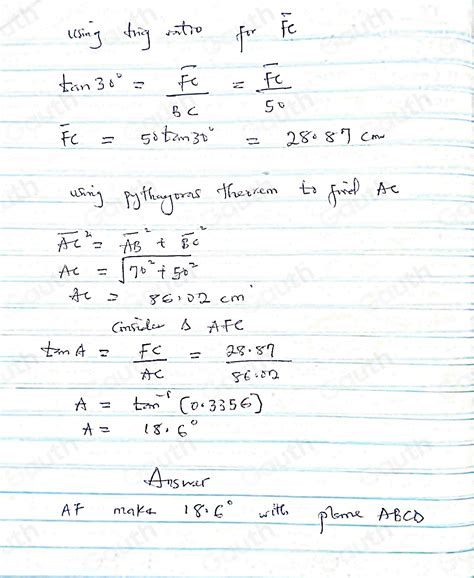 using trig ratio for F̅C̅
tan 30° = F̅C̅ / BC = F̅C̅ / 50
F̅C̅ = 50 tan 30° = 28.87 cm
using pythagoras theorem to find AC
A̅C̅² = A̅B̅² + B̅C̅²
AC = √70² + 50²
AC = 86.02 cm
Consider Δ AFC
tan A = FC / AC = 28.87 / 86.02
A = tan⁻¹ (0.3356)
A = 18.6°
Answer
AF make 18.6° with plane ABCD